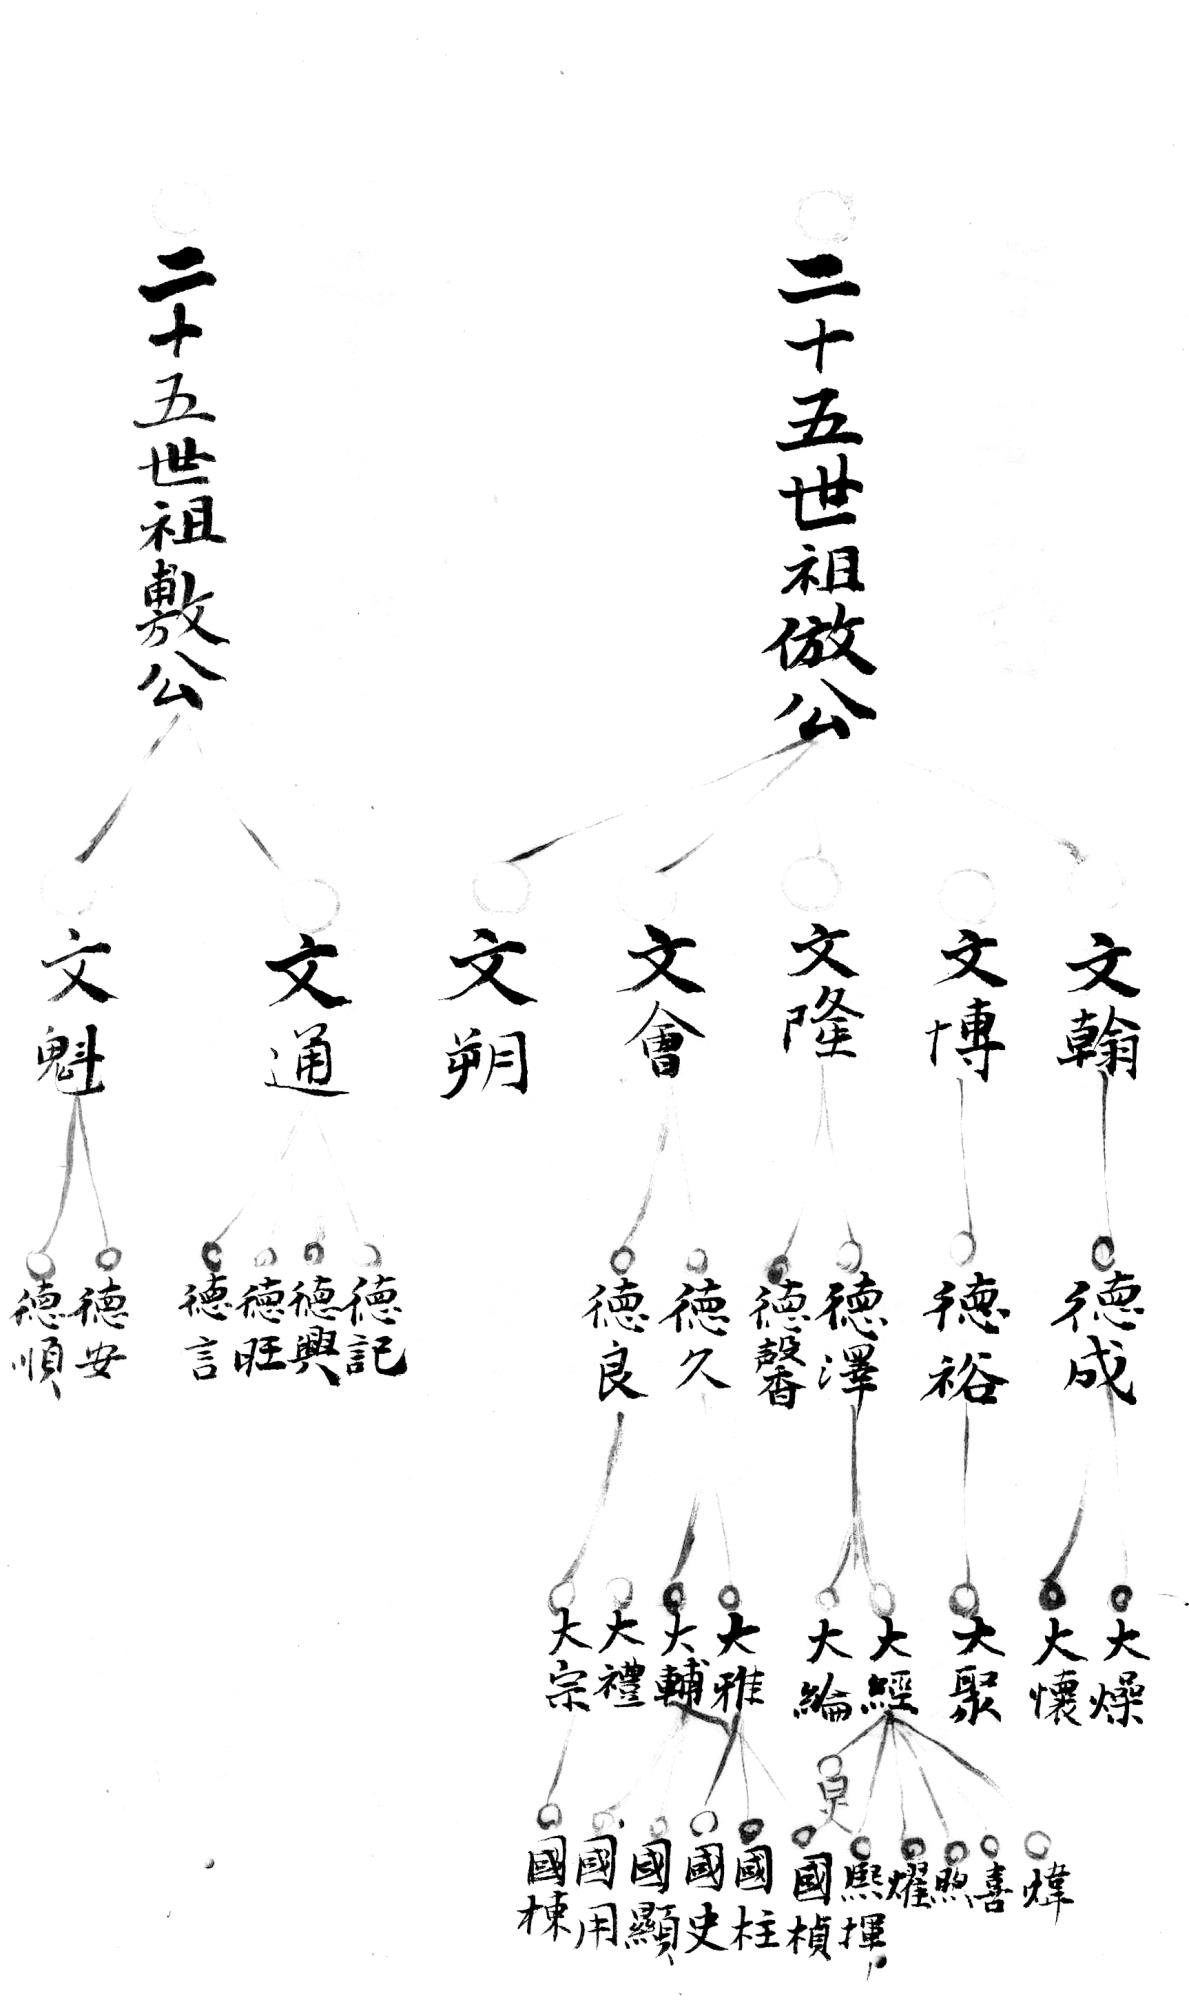 二十五世祖倣公
二十五世祖敷公
文翰
文博
文隆
文會
文朔
文通
文魁
德成
德裕
德澤
德馨
德久
德良
德記
德興
德旺
德言
德安
德順
大燥
大懷
大聚
大經
大綸
大雅
大輔
大禮
大宗
煒
喜
煦
耀
熙揮
國楨
國柱
國史
國顯
國用
國棟